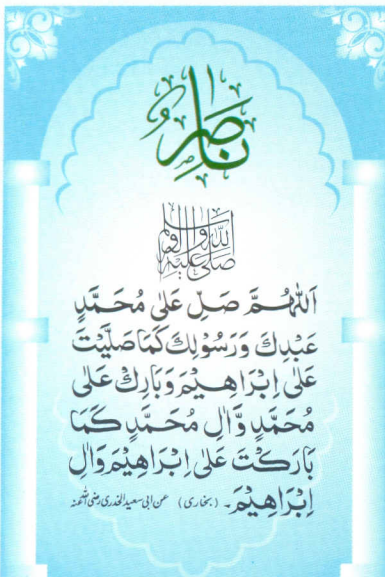 نَاصِرٌ
صلى الله عليه وآله وسلم
اَللّٰهُمَّ صَلِّ عَلٰى مُحَمَّدٍ
عَبْدِكَ وَرَسُوْلِكَ كَمَا صَلَّيْتَ
عَلٰى اِبْرَاهِيْمَ وَبَارِكْ عَلٰى
مُحَمَّدٍ وَّاٰلِ مُحَمَّدٍ كَمَا
بَارَكْتَ عَلٰى اِبْرَاهِيْمَ وَاٰلِ
اِبْرَاهِيْمَ۔ (بخاری) عن ابی سعید الخدری رضی اللہ عنہ